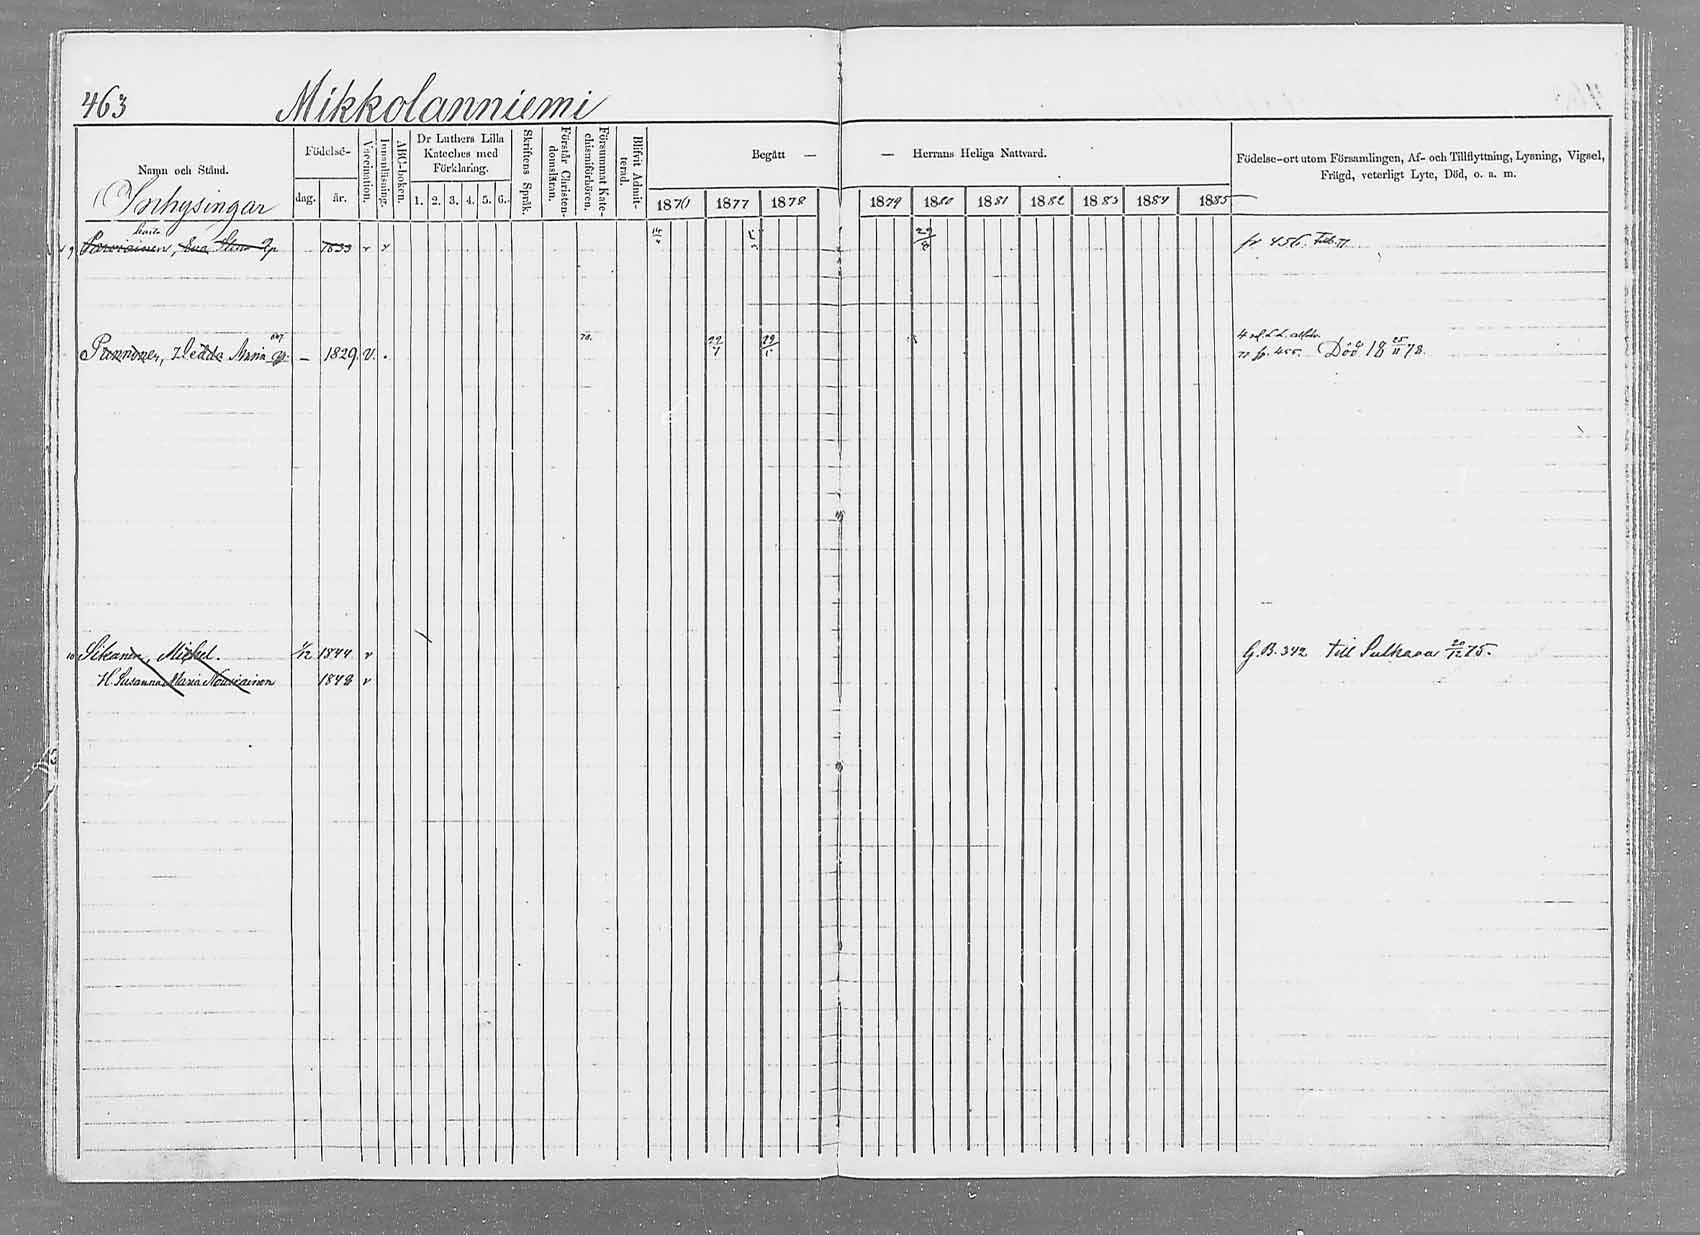 463 Mikkolanniemi
Namn och Stånd.
Inhysingar
Födelse-
dag. år.
Vaccination.
Innanläsning.
ABC-boken.
Dr Luthers Lilla
Kateches med
Förklaring.
1. 2. 3. 4. 5. 6.
Skriftens Språk.
Förstår Christen-
domsläran.
Försummat Kate-
chismiförhören.
Blifvit Admit-
terad.
Begått — — Herrans Heliga Nattvard.
1876 1877 1878 1879 1880 1881 1882 1883 1884 1885
Födelse-ort utom Församlingen, Af- och Tillflyttning, Lysning, Vigsel,
Frägd, veterligt Lyte, Död, o. a. m.
9 Parviainen, Eva Stina 1833 v v 29 fr 456.
Punnonen, Hedda Maria — 1829. V. 78. 22 29 Död 18 25/11 78.
10 Sikanen, Mickel. 1/12 1844 v G.B. 342 till Pulkava 20/12 75.
H. Susanna Maria Nousiainen 1848 v